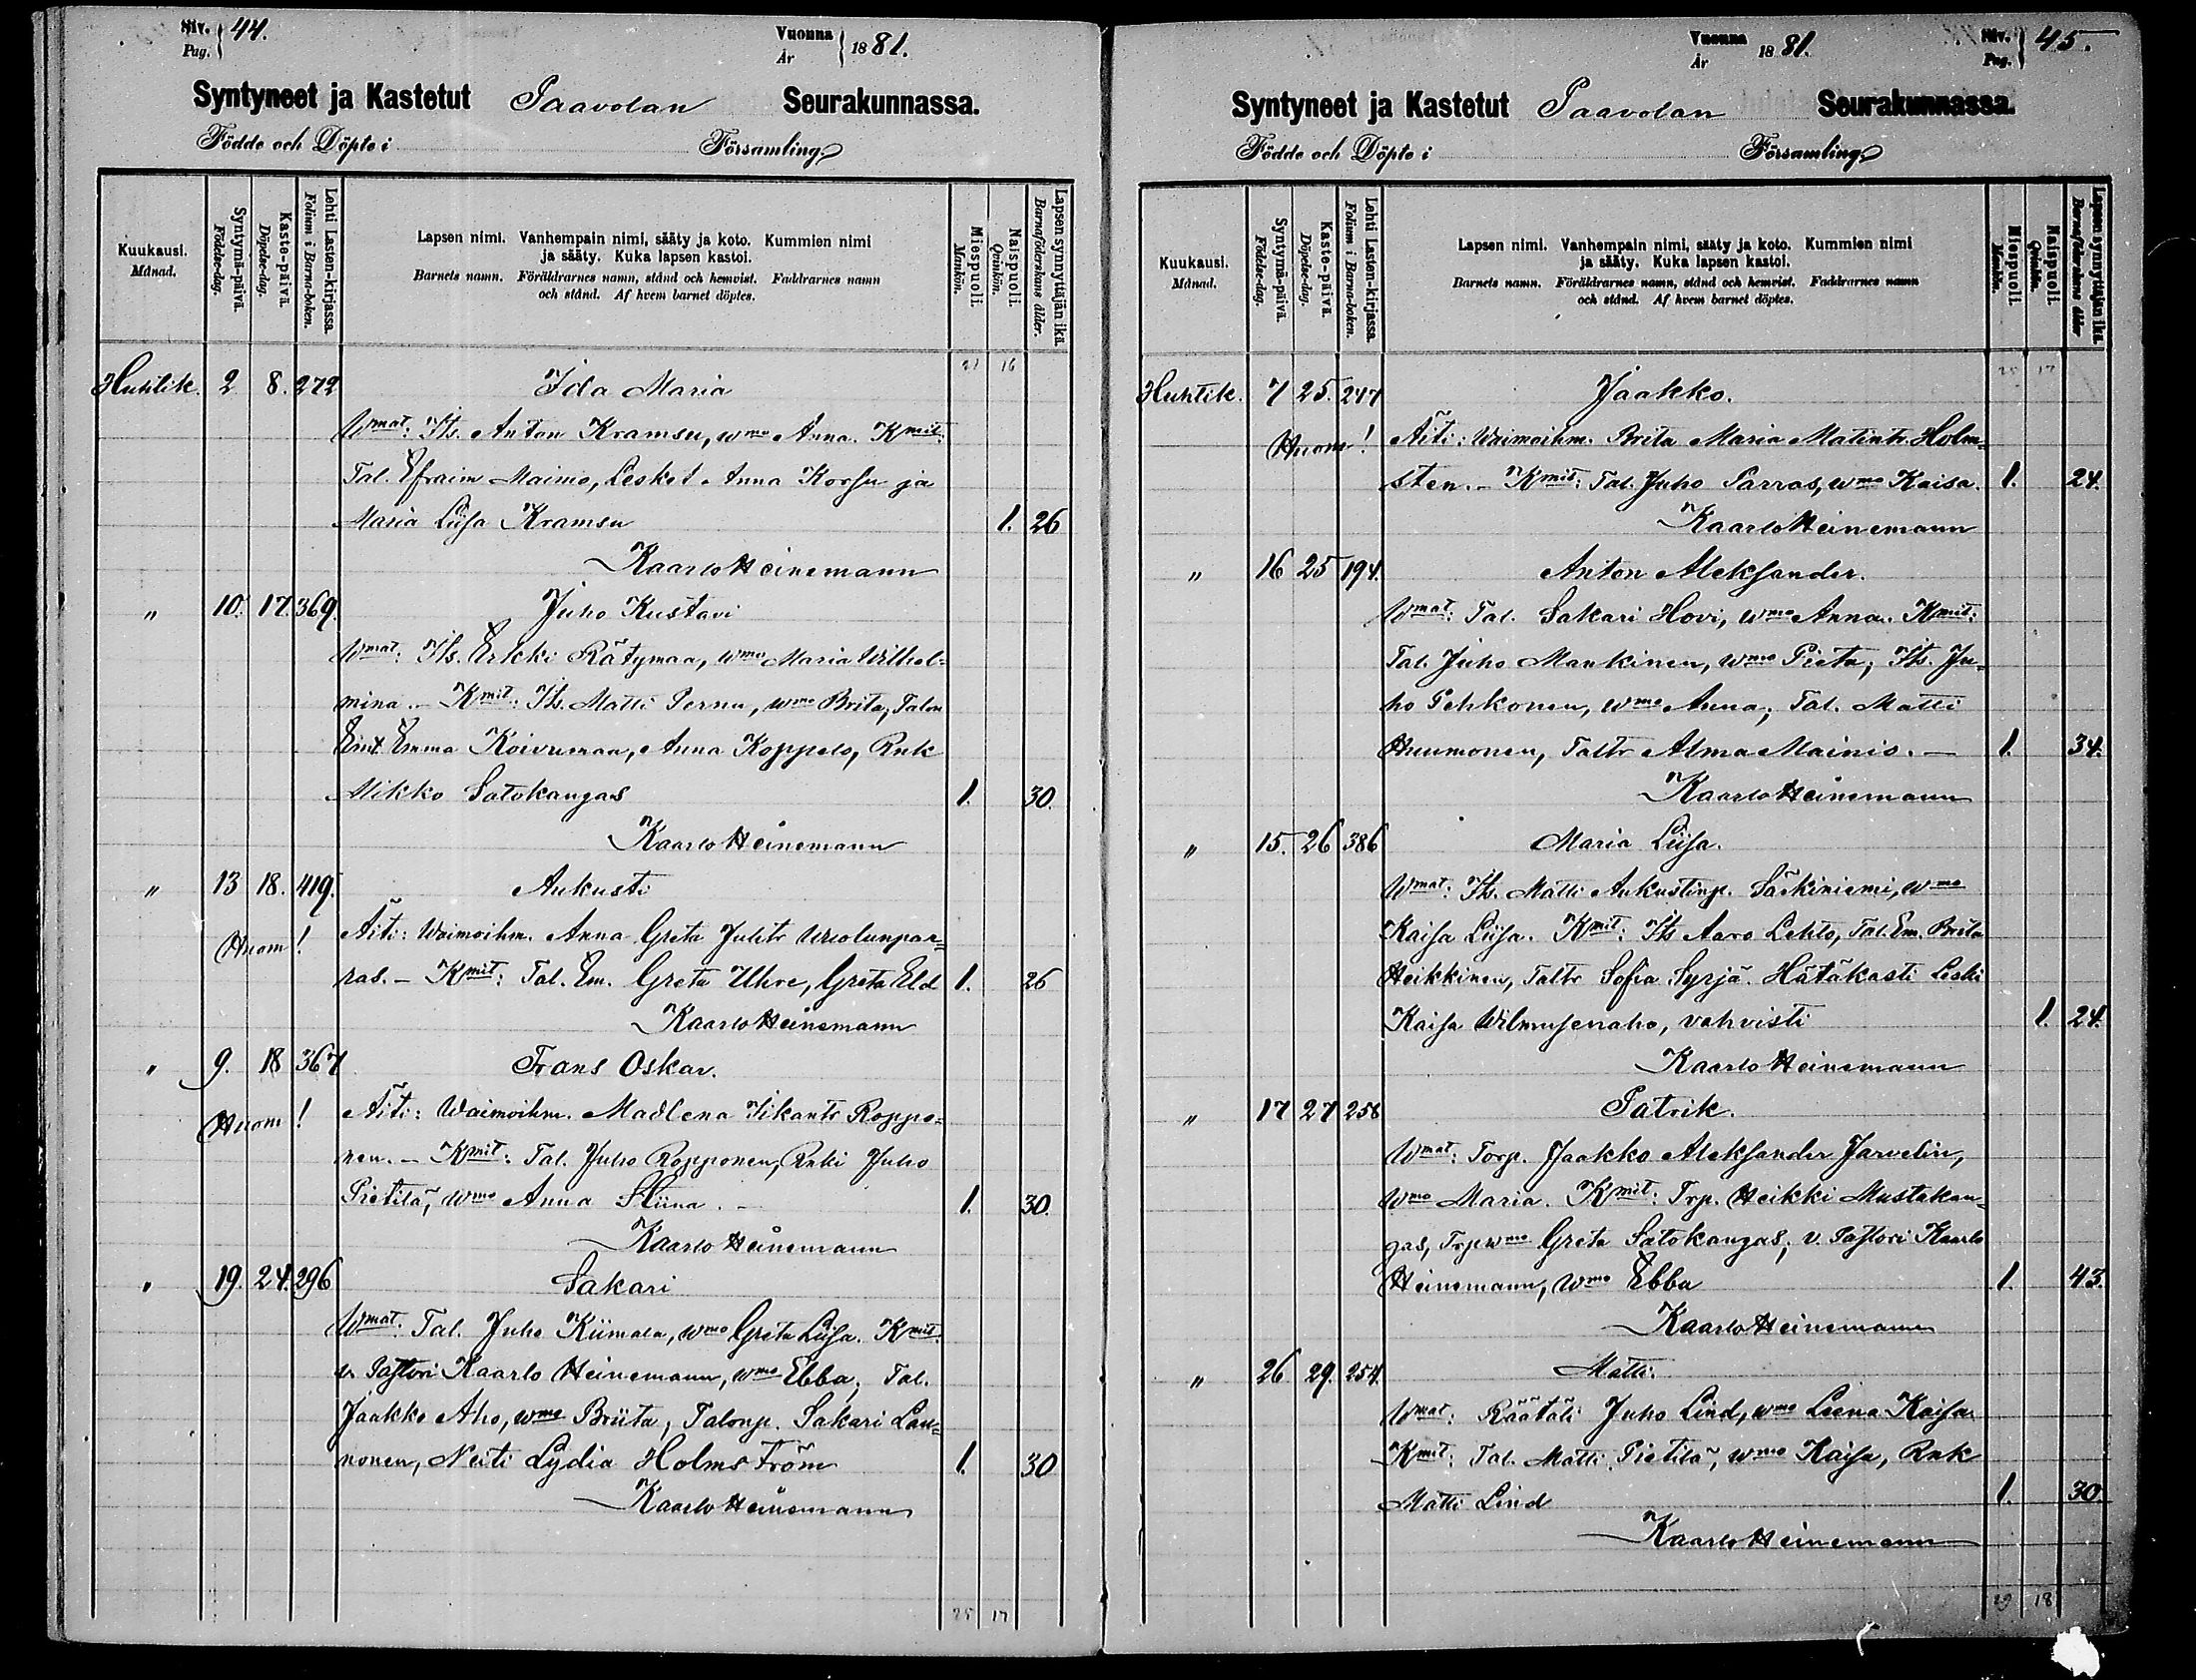 Siv. Pag. 44.
Vuonna År 1881.
Syntyneet ja Kastetut Paavolan Seurakunnassa.
Födde och Döpte i Församling
Kuukausi. Månad.
Syntymä-päivä. Födelse-dag.
Kaste-päivä. Döpelse-dag.
Lehti Lasten-kirjassa. Folium i Barna-boken.
Lapsen nimi. Vanhempain nimi, sääty ja koto. Kummien nimi
ja sääty. Kuka lapsen kastoi.
Barnets namn. Föräldrarnes namn, stånd och hemvist. Faddrarnes namn
och stånd. Af hvem barnet döptes.
Miespuoli. Mankön.
Naispuoli. Qvinkön.
Lapsen synnyttäjän ikä. Barnaföderskans ålder.
21 16
Huhtik. 2 8. 272 Ida Maria
Wmat: Its. Anton Kramsu, wmo Anna. Kmit:
Tal. Efraim Maimo, Lesket Anna Korsu ja
Maria Liisa Kramsu 1. 26
Kaarlo Heinemann
„ 10. 17. 369. Juho Kustavi
Wmat: Its. Erkki Rätymaa, wmo Maria Wilhel-
mina. – Kmit: Its. Matti Pernu, wmo Brita, Talon
Emt. Emma Koivumaa, Anna Koppelo, Rnk
Mikko Satokangas 1. 30.
Kaarlo Heinemann
„ 13 18. 419. Aukusti
Huom! Äiti: Waimoihm. Anna Greta Juhtr Uuolunpar-
ras. – Kmit: Tal. Em. Greta Uhre, Greta Eld 1. 26
Kaarlo Heinemann
„ 9. 18 367 Frans Oskar.
Huom! Äiti: Waimoihm. Madlena Iikantr Roppo-
nen. – Kmit: Tal. Juho Ropponen, Rnki Juho
Pietilä, wmo Anna Stiina. – 1. 30.
Kaarlo Heinemann
„ 19. 24. 296 Sakari
Wmat: Tal. Juho Kiimala, wmo Greta Liisa. Kmit:
v. Pastori Kaarlo Heinemann, wmo Ebba, Tal.
Jaakko Aho, wmo Briita, Talonp. Sakari Lau-
nonen, Neiti Lydia Holmström 1. 30
Kaarlo Heinemann
25 17
Vuonna År 1881.
Siv. Pag. 45.
Syntyneet ja Kastetut Paavolan Seurakunnassa.
Födde och Döpte i Församling
Kuukausi. Månad.
Syntymä-päivä. Födelse-dag.
Kaste-päivä. Döpelse-dag.
Lehti Lasten-kirjassa. Folium i Barna-boken.
Lapsen nimi. Vanhempain nimi, sääty ja koto. Kummien nimi
ja sääty. Kuka lapsen kastoi.
Barnets namn. Föräldrarnes namn, stånd och hemvist. Faddrarnes namn
och stånd. Af hvem barnet döptes.
Miespuoli. Mankön.
Naispuoli. Qvinkön.
Lapsen synnyttäjän ikä. Barnaföderskans ålder
25 17
Huhtik. 7 25. 247 Jaakko.
Huom! Äiti: Waimoihm. Brita Maria Matintr. Holm-
sten. – Kmit: Tal. Juho Parras, wmo Kaisa. 1. 24.
Kaarlo Heinemann
„ 16 25 194. Anton Aleksander.
Wmat: Tal. Sakari Hovi, wmo Anna. Kmit:
Tal. Juho Mankinen, wmo Pieta, Its. Ju-
ho Pehkonen, wmo Anna, Tal. Matti
Huumonen, Taltr Alma Mainio. – 1. 34.
Kaarlo Heinemann
„ 15. 26 386 Maria Liisa.
Wmat: Its. Matti Aukustinp. Särkiniemi, wmo
Kaisa Liisa. Kmit: Its Aaro Lehto, Tal. Em. Brita
Heikkinen, Taltr Sofia Syrjä. Hätäkasti Leski
Kaisa Wilmusenaho, vahvisti 1. 24.
Kaarlo Heinemann
„ 17 27 258 Patrik.
Wmat: Torp. Jaakko Aleksander Jarvelin,
Wmo Maria. Kmit: Trp. Heikki Mustakan-
gas, Trpwmo Greta Satokangas, v. Pastori Kaarlo
Heinemann, Wmo Ebba 1. 43.
Kaarlo Heinemann
„ 26 29. 254. Matti.
Wmat: Räätäli Juho Lind, wmo Leena Kaisa
Kmit: Tal. Matti Pietilä, wmo Kaisa, Rnk
Matti Lind 1. 30
Kaarlo Heinemann
29 18